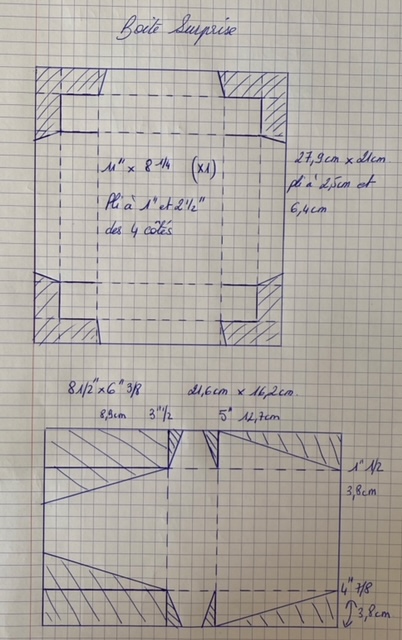 Boîte Surprise
11" x 8 1/4 (x1)
Pli à 1" et 2 1/2"
des 4 côtés
27,9cm x 21cm
pli à 2,5cm et
6,4cm
8 1/2" x 6" 3/8 21,6cm x 16,2cm
8,9cm 3" 1/2 5" 12,7cm
1" 1/2
3,8cm
4" 7/8
3,8cm